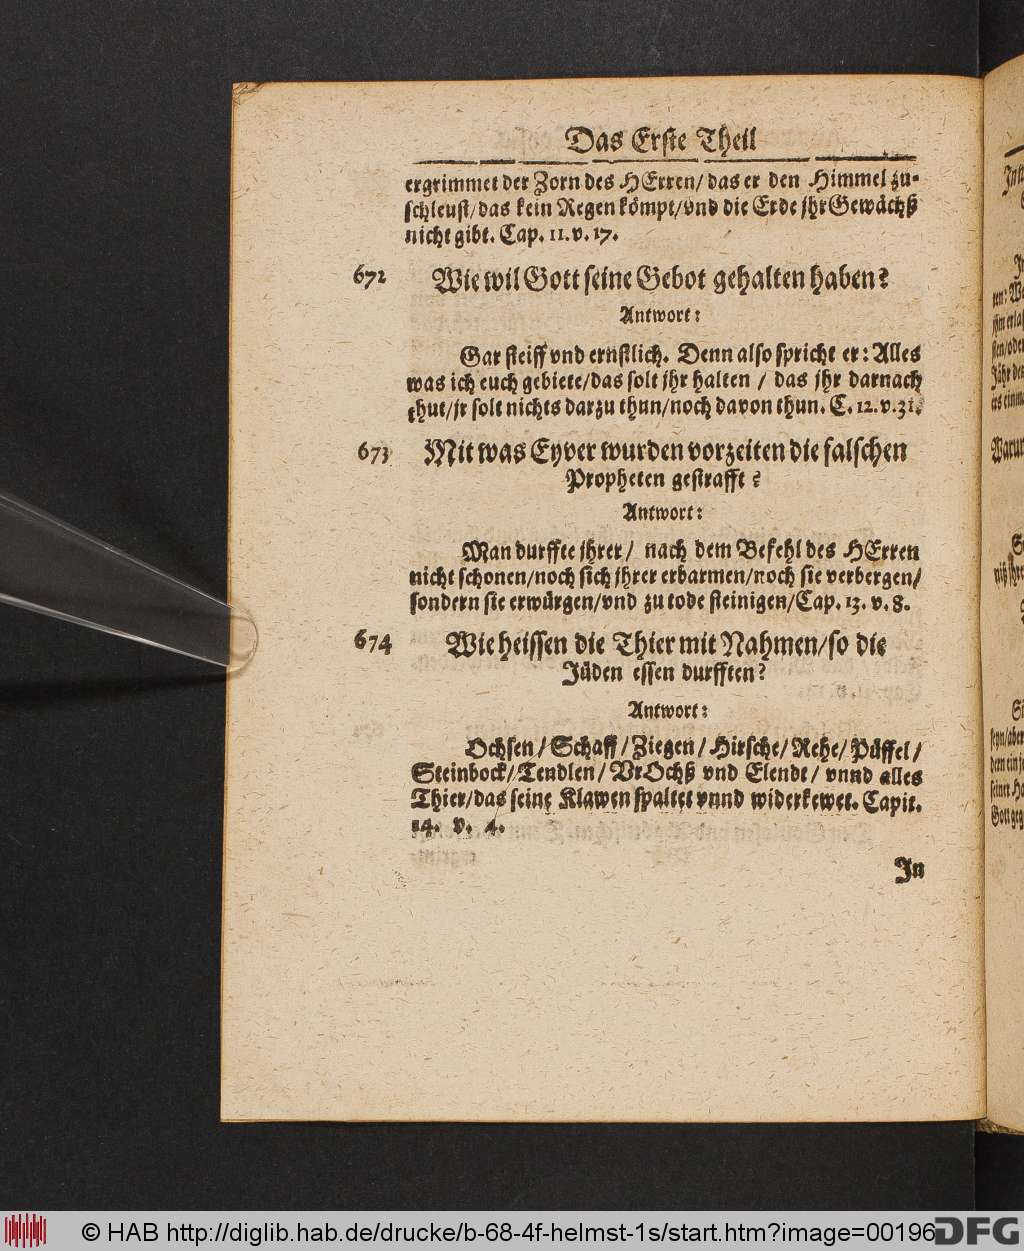 Das Erste Theil
ergrimmet der Zorn des HErren/ das er den Himmel zu-
schleust/ das kein Regen kömpt/ vnd die Erde jhr Gewächß
nicht gibt. Cap. 11. v. 17.
672 Wie wil Gott seine Gebot gehalten haben?
Antwort:
Gar steiff vnd ernstlich. Denn also spricht er: Alles
was ich euch gebiete/ das solt jhr halten / das jhr darnach
thut/ jr solt nichts darzu thun/ noch davon thun. C. 12. v. 31.
673 Mit was Eyver wurden vorzeiten die falschen
Propheten gestrafft?
Antwort:
Man durffte jhrer/ nach dem Befehl des HErren
nicht schonen/ noch sich jhrer erbarmen/ noch sie verbergen/
sondern sie erwürgen/ vnd zu tode steinigen/ Cap. 13. v. 8.
674 Wie heissen die Thier mit Nahmen/ so die
Jüden essen durfften?
Antwort:
Ochsen / Schaff / Ziegen / Hirsche/ Rehe/ Püffel /
Steinbock/ Tendlen / VrOchß vnd Elendt / vnnd alles
Thier/ das seine Klawen spaltet vnnd widerkewet. Capit.
14. v. 4.
In
© HAB http://diglib.hab.de/drucke/b-68-4f-helmst-1s/start.htm?image=00196
DFG